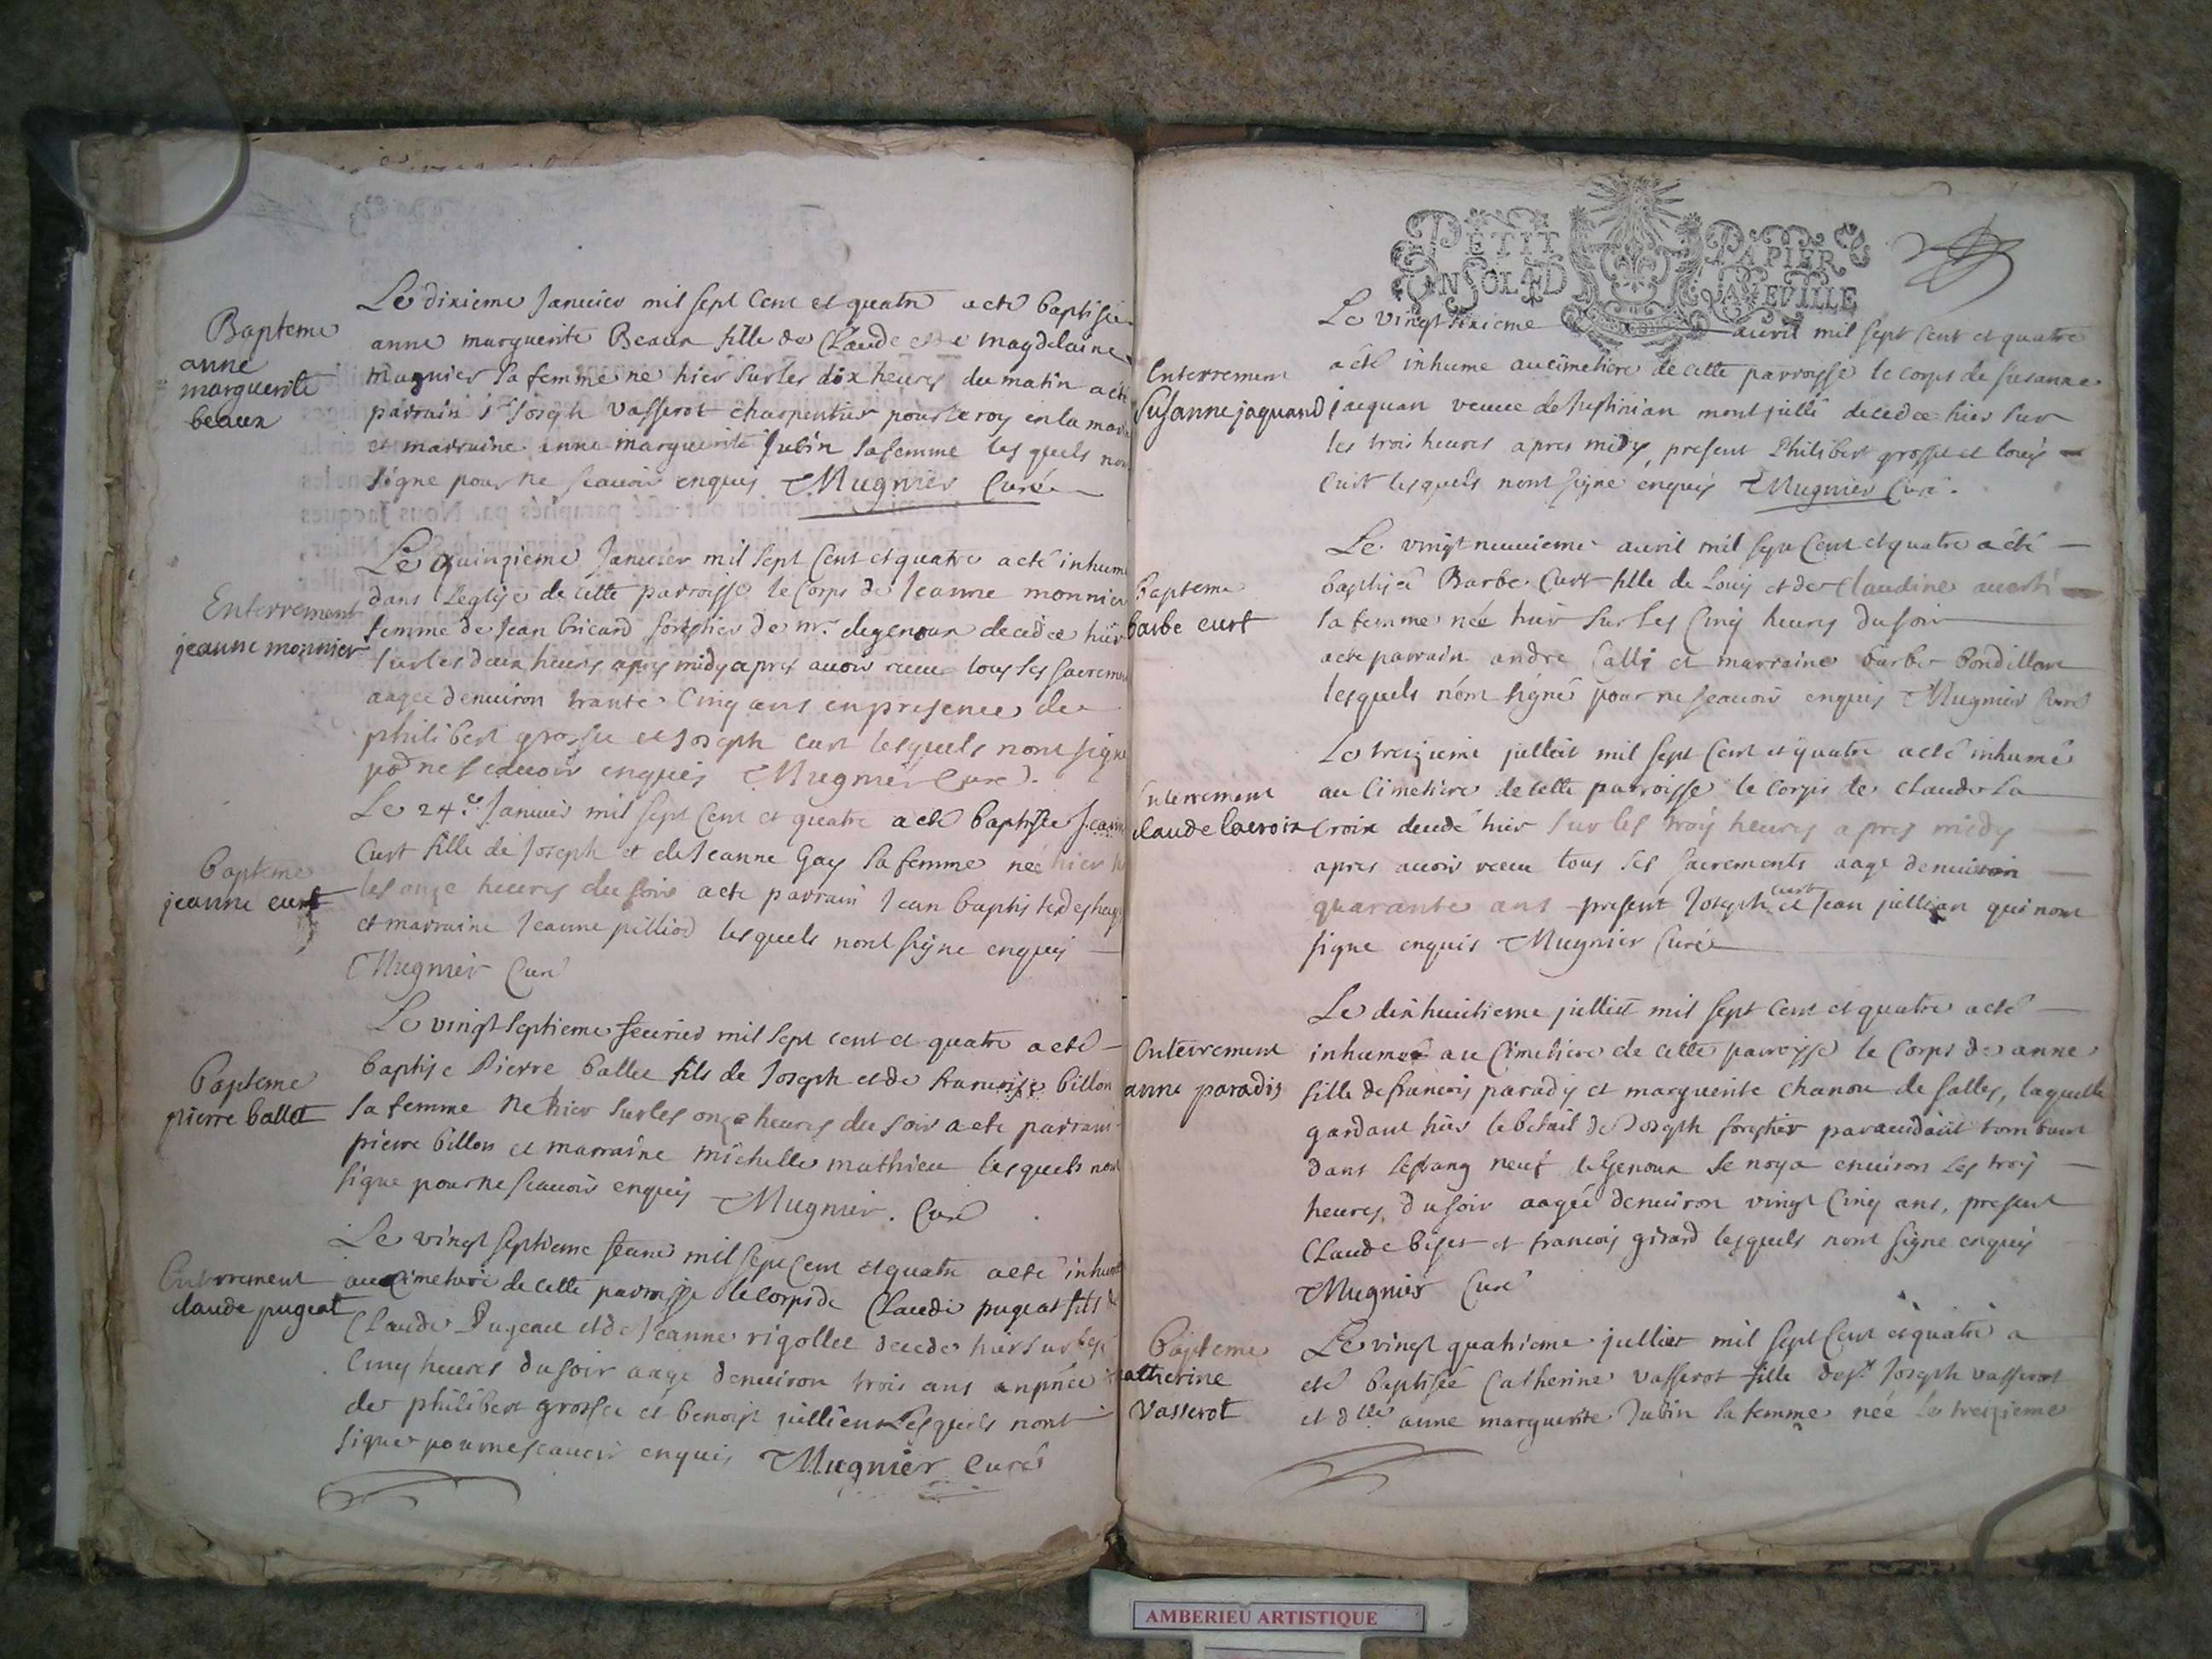 Bapteme
anne
marguerite
beaux
Le dixieme Januier mil sept Cent et quatre a eté baptisée
anne marguerite Beaux fille de Claude et de magdelaine
mugnier sa femme ne hier sur les dix heures du matin a eté
parrain sr Joseph Vasserot charpentier pour le roy en la
et marraine anne marguerite Jubin sa femme les quels
signe pour ne scauoir enquis Mugnier Curé
Enterrement
jeanne monnier
Le quinzieme Januier mil sept Cent et quatre a eté inhumé
dans Leglise de cette parroisse le Corps de Jeanne monnier
femme de Jean bricard de mr. degenoux decedée hier
sur les deux heures apres midy apres auoir receu tous ses sacrements
aagée denuiron trante Cinq ans en presence de
philibert grosset et Joseph curt lesquels nont signe
por ne scauoir enquis Mugnier Curé
Bapteme
jeanne curt
Le 24e. Januier mil sept Cent et quatre a eté baptisée Jeanne
Curt fille de Joseph et de Jeanne Gay sa femme née hier
les onze heures du soir a eté parrain Jean baptiste
et marraine Jeanne pilliod lesquels nont signe enquis
Mugnier Curé
Bapteme
pierre ballet
Le vingt septieme feurier mil sept cent et quatre a eté
baptise Pierre ballet fils de Joseph et de francoise billon
sa femme ne hier sur les onze heures du soir a eté parrain
pierre billon et marraine michelle mathieu lesquels nont
signe pour ne scauoir enquis Mugnier. Curé
Enterrement
claude pugeat
Le vingt septieme feurie mil sept Cent et quatre a eté inhumé
au Cimetiere de cette parroisse le corps de Claude pugeat fils de
Claude Pugeat et de Jeanne rigollet decede hier sur les
Cinq heures du soir aage denuiron trois ans
de philibert grosset et benoist jullien Lesquels nont
signe pour ne scauoir enquis Mugnier Curé
PETIT PAPIER
UN SOL LA FEVILLE
Enterrement
Susanne jaquand
Le vingt sixieme auril mil sept Cent et quatre
a eté inhume au cimetiere de cette parroisse le corps de susanne
jacquan veuue de mont jullé decedée hier sur
les trois heures apres midy, present Philibert grosset et Louis
Curt lesquels nont signe enquis Mugnier Curé.
Bapteme
barbe curt
Le vingt neuuieme auril mil sept Cent et quatre a eté
baptisée Barbe Curt fille de Louis et de Claudine
sa femme née hier sur les Cinq heures du soir
a eté parrain andre Calli et marraine barbe
lesquels n'ont signé pour ne scauoir enquis Mugnier Curé
Enterrement
claude lacroix
Le treizieme julliet mil sept Cent et quatre a eté inhumé
au Cimetiere de cette parroisse le corps de claude La
Croix decedé hier sur les trois heures apres midy
apres auoir receu tous ses sacrements aage denuiron
quarante ans present Joseph curt et Jean jullian qui nont
signe enquis Mugnier Curé
Enterrement
anne paradis
Le dix huictieme julliet mil sept Cent et quatre a eté
inhumée au Cimetiere de cette parroisse le Corps de anne
fille de francois paradis et marguerite chanou de salles, laquelle
gardant hier le betail de Joseph forestier tombant
dans lestang neuf de Genoux se noya enuiron les trois
heures du soir aagée denuiron vingt Cinq ans, present
Claude bifet et francois girard lesquels nont signe enquis
Mugnier Curé
Bapteme
catherine
vasserot
Le vingt quatrieme julliet mil sept Cent et quatre a
eté baptisée Catherine Vasserot fille de sr. Joseph vasserot
et dlle anne marguerite Jubin sa femme née Le treizieme
AMBERIEU ARTISTIQUE